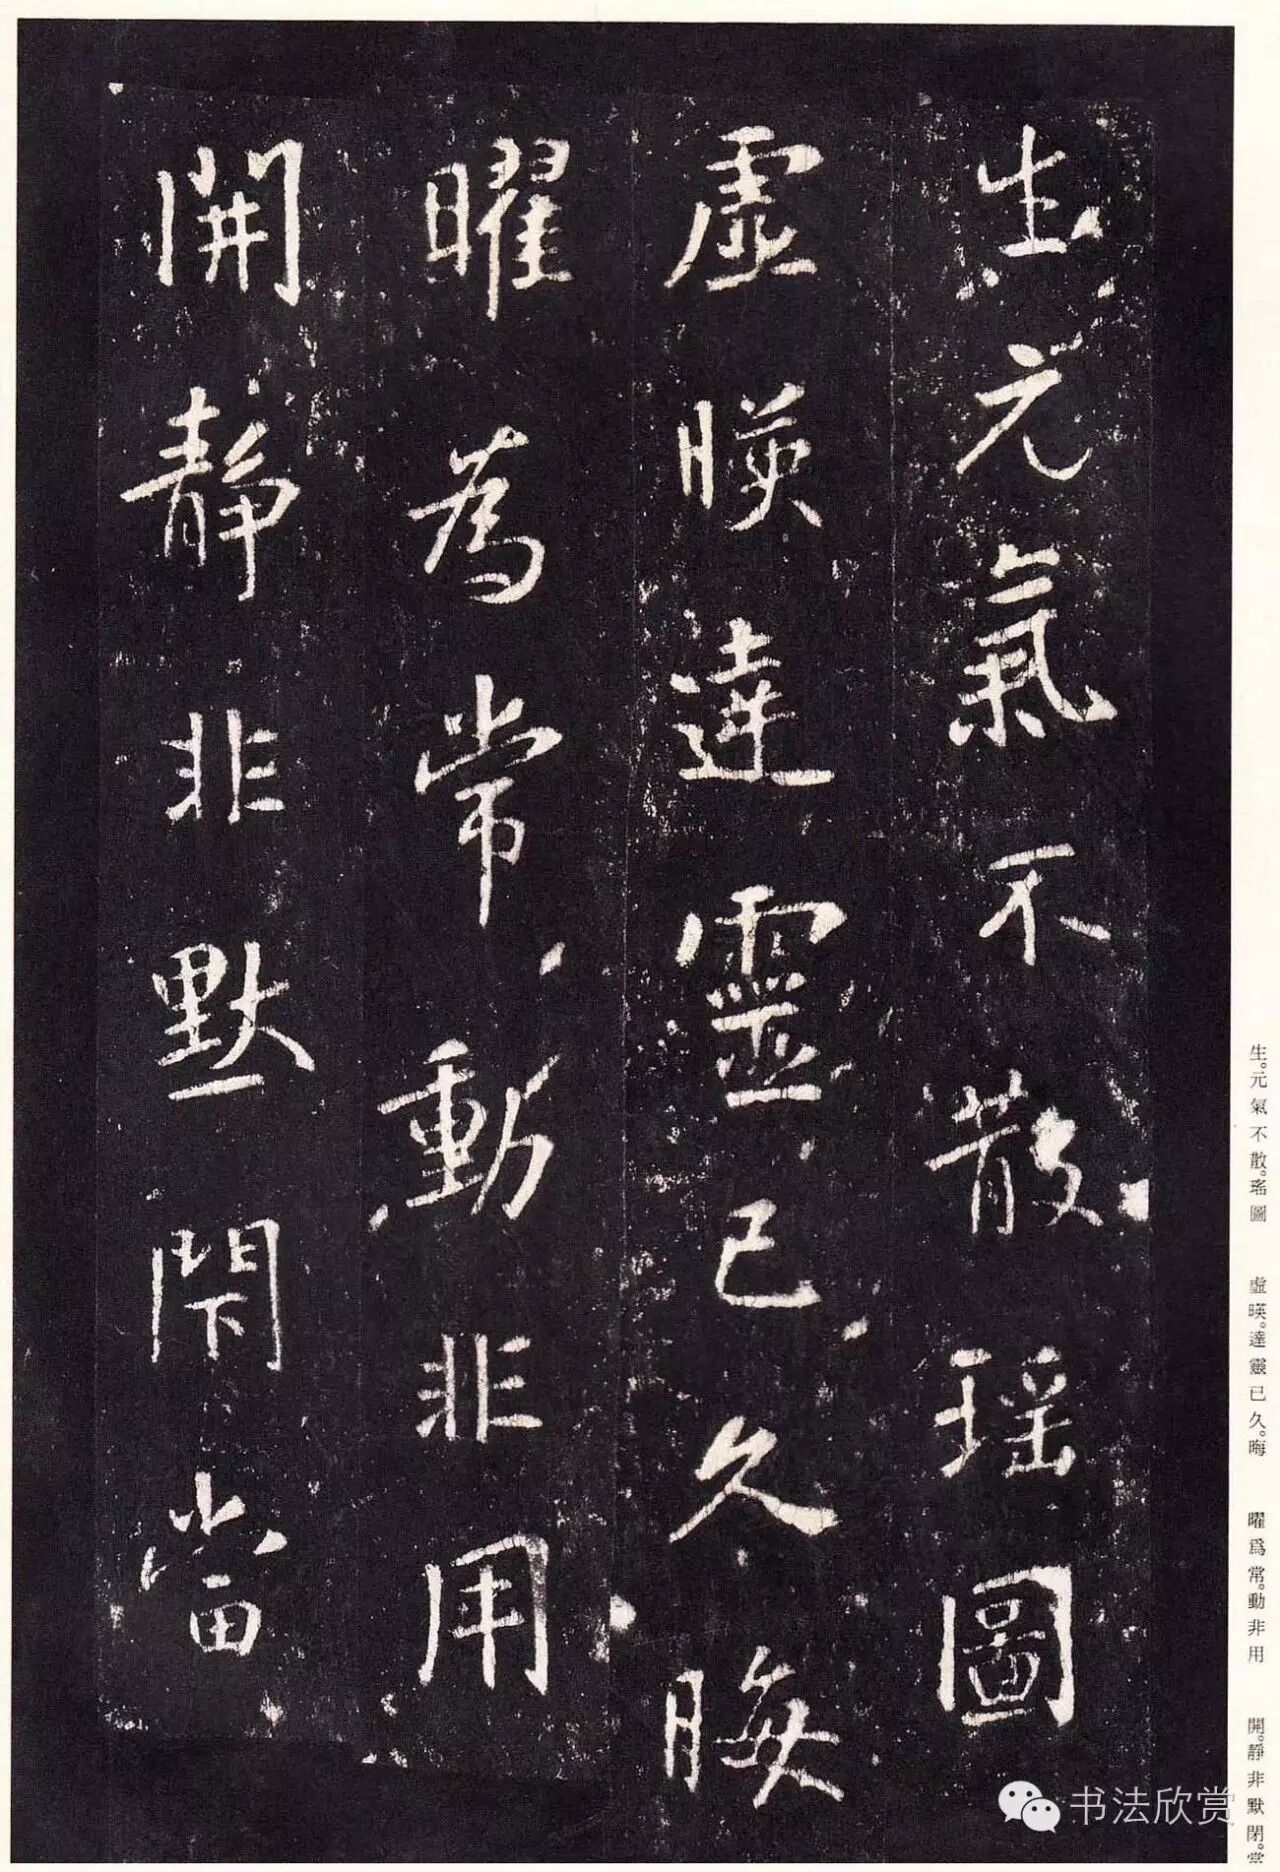 生元氣不散瑶圖
虛暎達靈已久晦
曜為常動非用
開静非默閇當
生。元氣不散。瑤圖
虛暎。達靈已久。晦
曜爲常。動非用
開。靜非默閉。當
书法欣赏